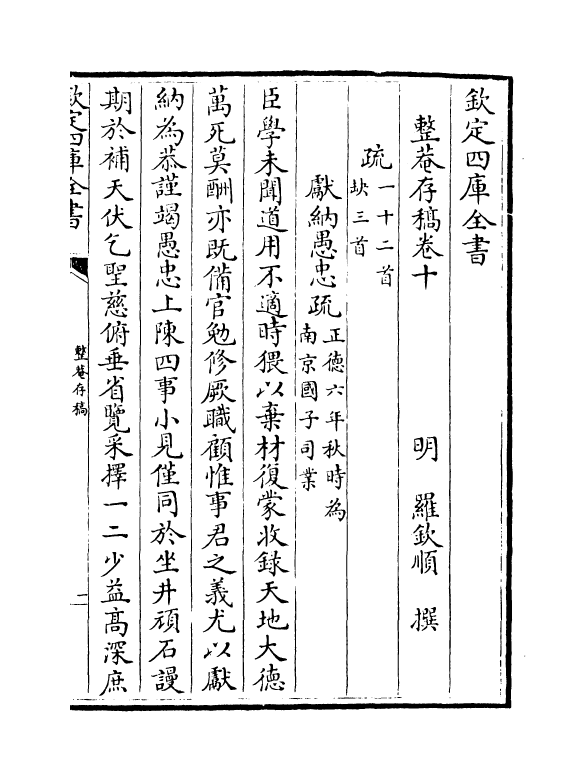 欽定四庫全書
整菴存稿卷十
明 羅欽順 撰
疏一十二首
缺三首
獻納愚忠疏正德六年秋時為
南京國子司業
臣學未聞道用不適時猥以棄材復蒙收錄天地大德
萬死莫酬亦既備官勉修厥職顧惟事君之義尤以獻
納為恭謹竭愚忠上陳四事小見僅同於坐井頑石謾
期於補天伏乞聖慈俯垂省覽采擇一二少益高深庶
欽定四庫全書
整菴存稿